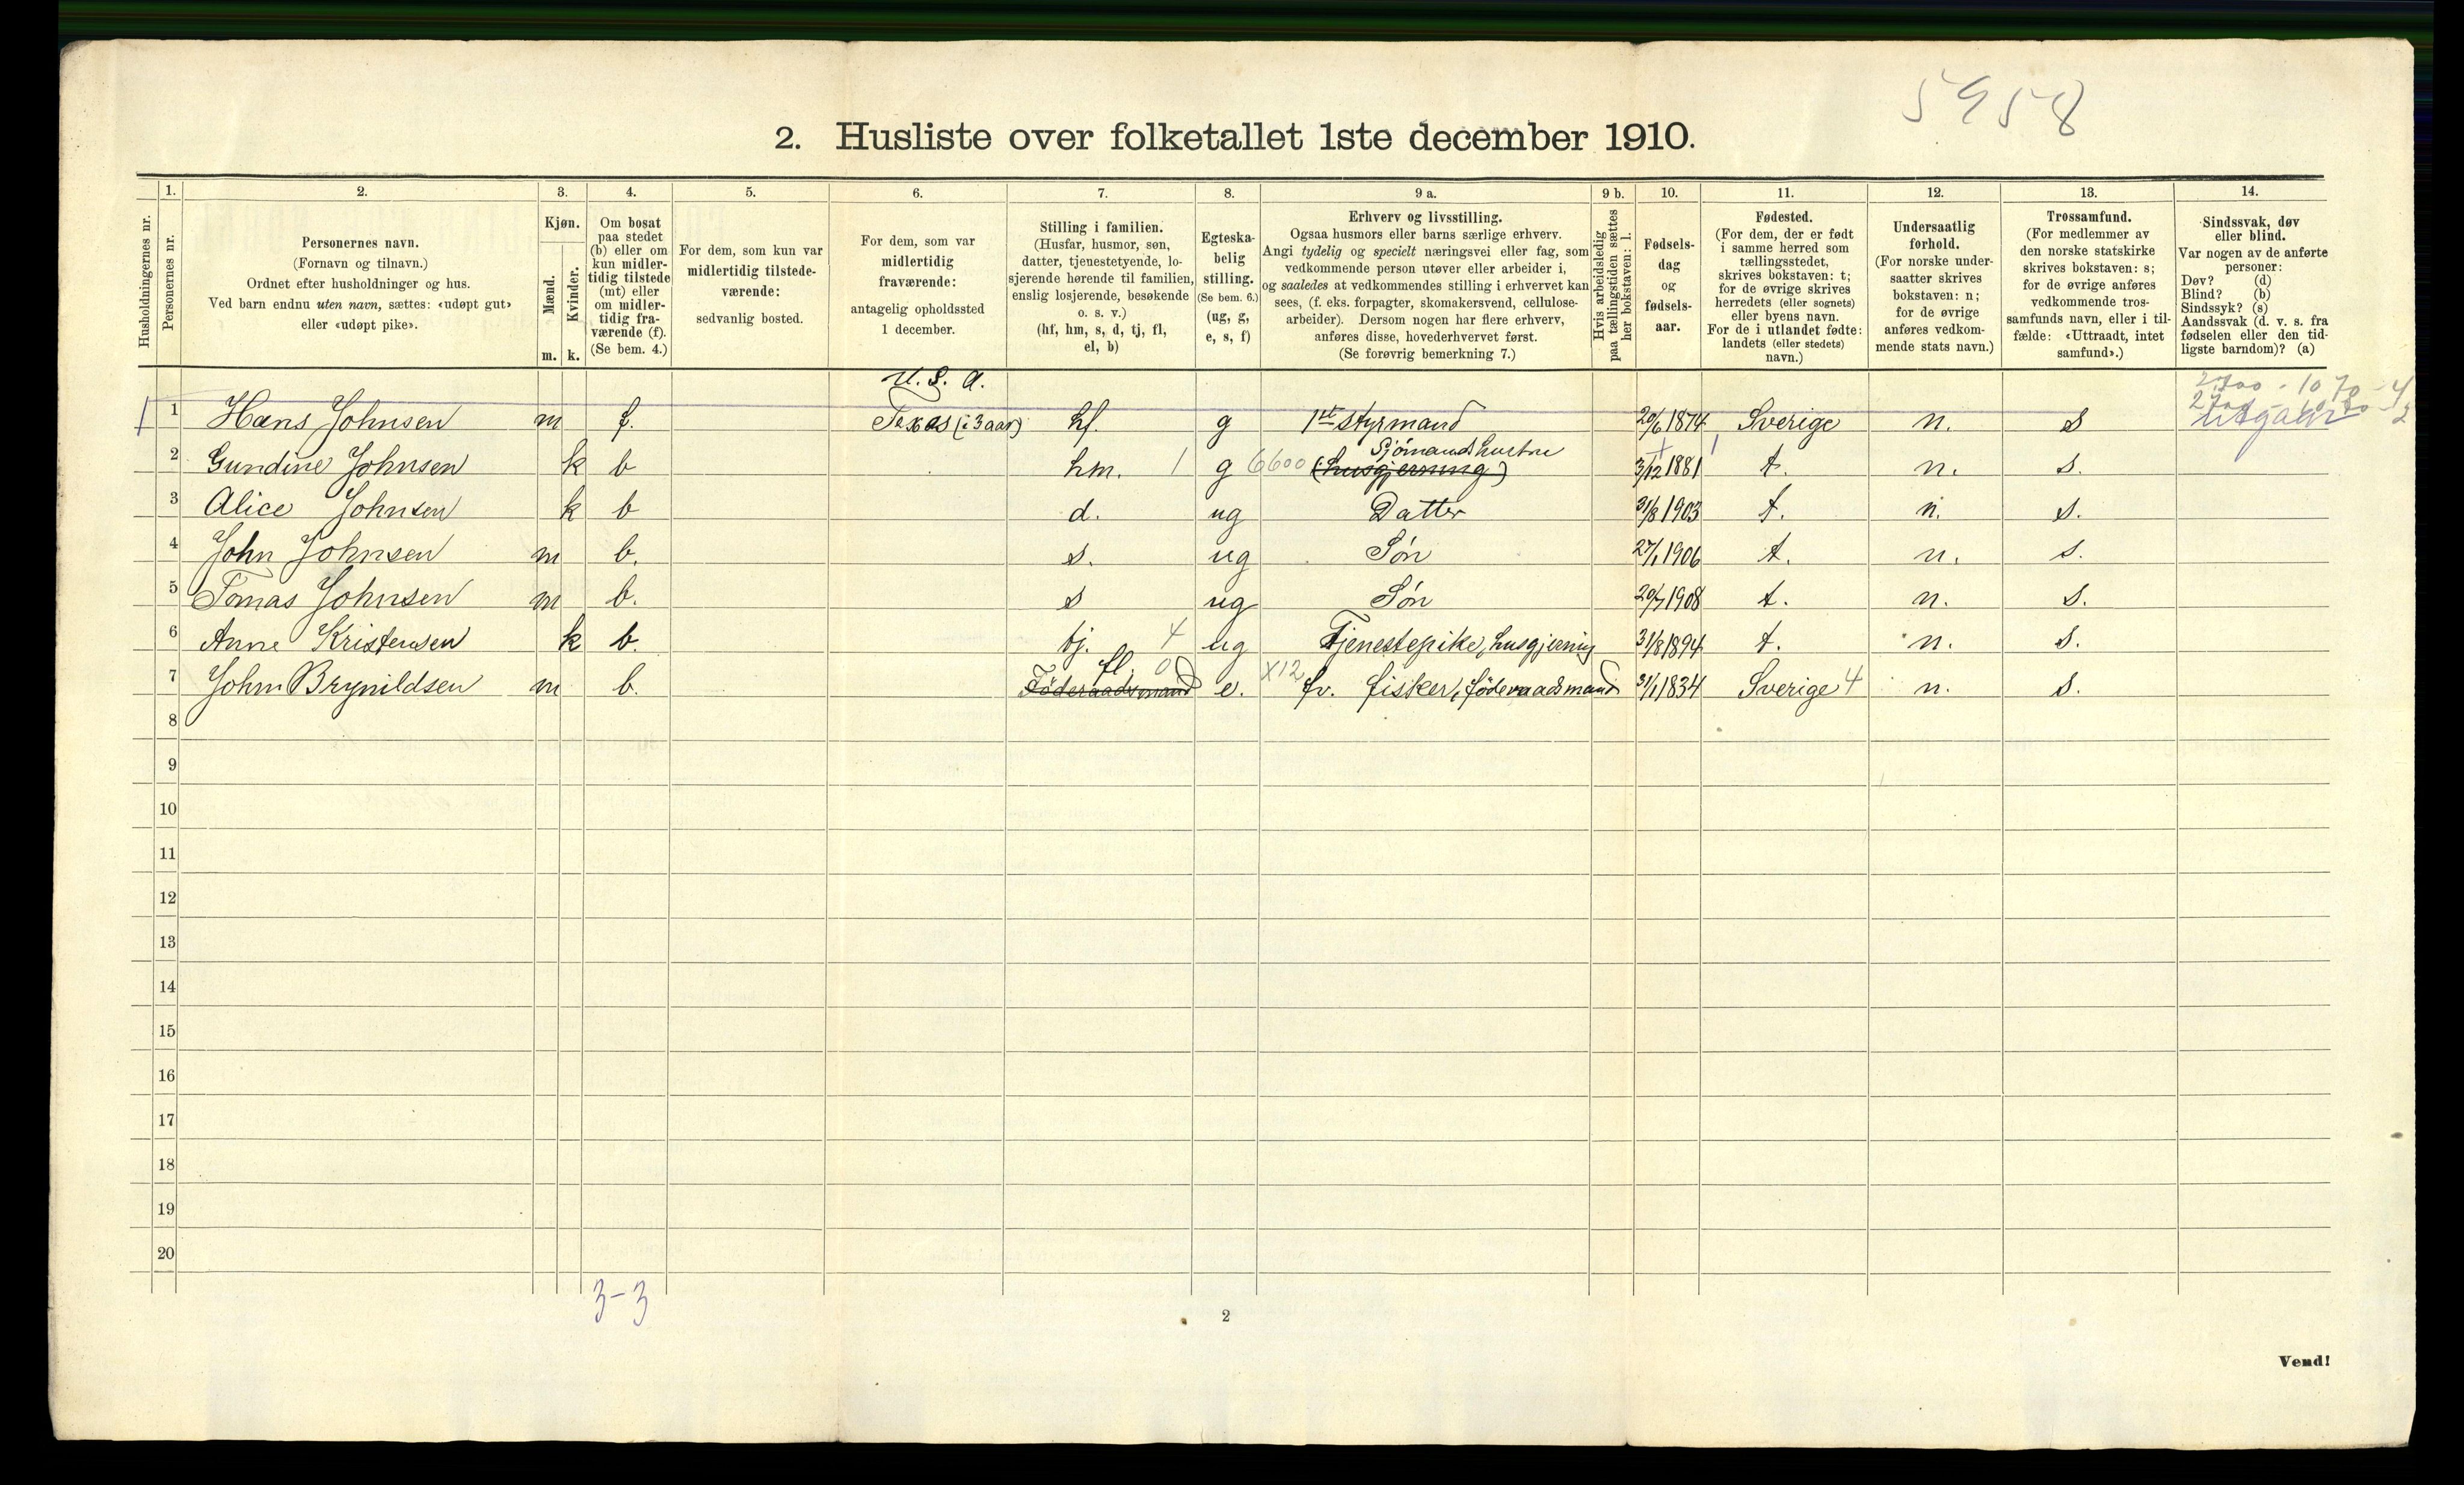 5958
2. Husliste over folketallet 1ste december 1910.
1. 2. 3. 4. 5. 6. 7. 8. 9 a. 9 b. 10. 11. 12. 13. 14.
Husholdningernes nr.
Personernes nr.
Personernes navn.
(Fornavn og tilnavn.)
Ordnet efter husholdninger og hus.
Ved barn endnu uten navn, sættes: «udøpt gut»
eller «udøpt pike».
Kjøn.
Mænd.
m.
Kvinder.
k.
Om bosat
paa stedet
(b) eller om
kun midler-
tidig tilstede
(mt) eller
om midler-
tidig fra-
værende (f).
(Se bem. 4.)
For dem, som kun var
midlertidig tilstede-
værende:
sedvanlig bosted.
For dem, som var
midlertidig
fraværende:
antagelig opholdssted
1 december.
Stilling i familien.
(Husfar, husmor, søn,
datter, tjenestetyende, lo-
sjerende hørende til familien,
enslig losjerende, besøkende
o. s. v.)
(hf, hm, s, d, tj, fl,
el, b)
Egteska-
belig
stilling.
(Se bem. 6.)
(ug, g,
e, s, f)
Erhverv og livsstilling.
Ogsaa husmors eller barns særlige erhverv.
Angi tydelig og specielt næringsvei eller fag, som
vedkommende person utøver eller arbeider i,
og saaledes at vedkommendes stilling i erhvervet kan
sees, (f. eks. forpagter, skomakersvend, cellulose-
arbeider). Dersom nogen har flere erhverv,
anføres disse, hovederhvervet først.
(Se forøvrig bemerkning 7.)
Hvis arbeidsledig
paa tællingstiden sættes
her bokstaven: l.
Fødsels-
dag
og
fødsels-
aar.
Fødested.
(For dem, der er født
i samme herred som
tællingsstedet,
skrives bokstaven: t;
for de øvrige skrives
herredets (eller sognets)
eller byens navn.
For de i utlandet fødte:
landets (eller stedets)
navn.)
Undersaatlig
forhold.
(For norske under-
saatter skrives
bokstaven: n;
for de øvrige
anføres vedkom-
mende stats navn.)
Trossamfund.
(For medlemmer av
den norske statskirke
skrives bokstaven: s;
for de øvrige anføres
vedkommende tros-
samfunds navn, eller i til-
fælde: «Uttraadt, intet
samfund».)
Sindssvak, døv
eller blind.
Var nogen av de anførte
personer:
Døv? (d)
Blind? (b)
Sindssyk? (s)
Aandssvak (d. v. s. fra
fødselen eller den tid-
ligste barndom)? (a)
U. S. A.
1 1 Hans Johnsen m f. Texas (i 3 aar) hf. g 1ste styrmand 20/6 1874 Sverige n. s utgaar
Sjømandshustru
2 Gundine Johnsen k b hm. 1 g 6600 (husgjerning) 3/12 1881 t. n. s.
3 Alice Johnsen k b d. ug Datter 31/8 1903 t. n. s.
4 John Johnsen m b. s. ug Søn 27/1 1906 t. n. s.
5 Tomas Johnsen m b. s ug Søn 20/7 1908 t. n. s.
6 Anne Kristensen k b. tj. 4 ug Tjenestepike, husgjerning 31/8 1894 t. n. s.
fl. 0
7 John Brynildsen m b. Föderaadsmand e. X12 fv. fisker, föderaadsmand 31/1 1834 Sverige 4 n. s.
8
9
10
11
12
13
14
15
16
17
18
19
20
3-3
2
Vend!